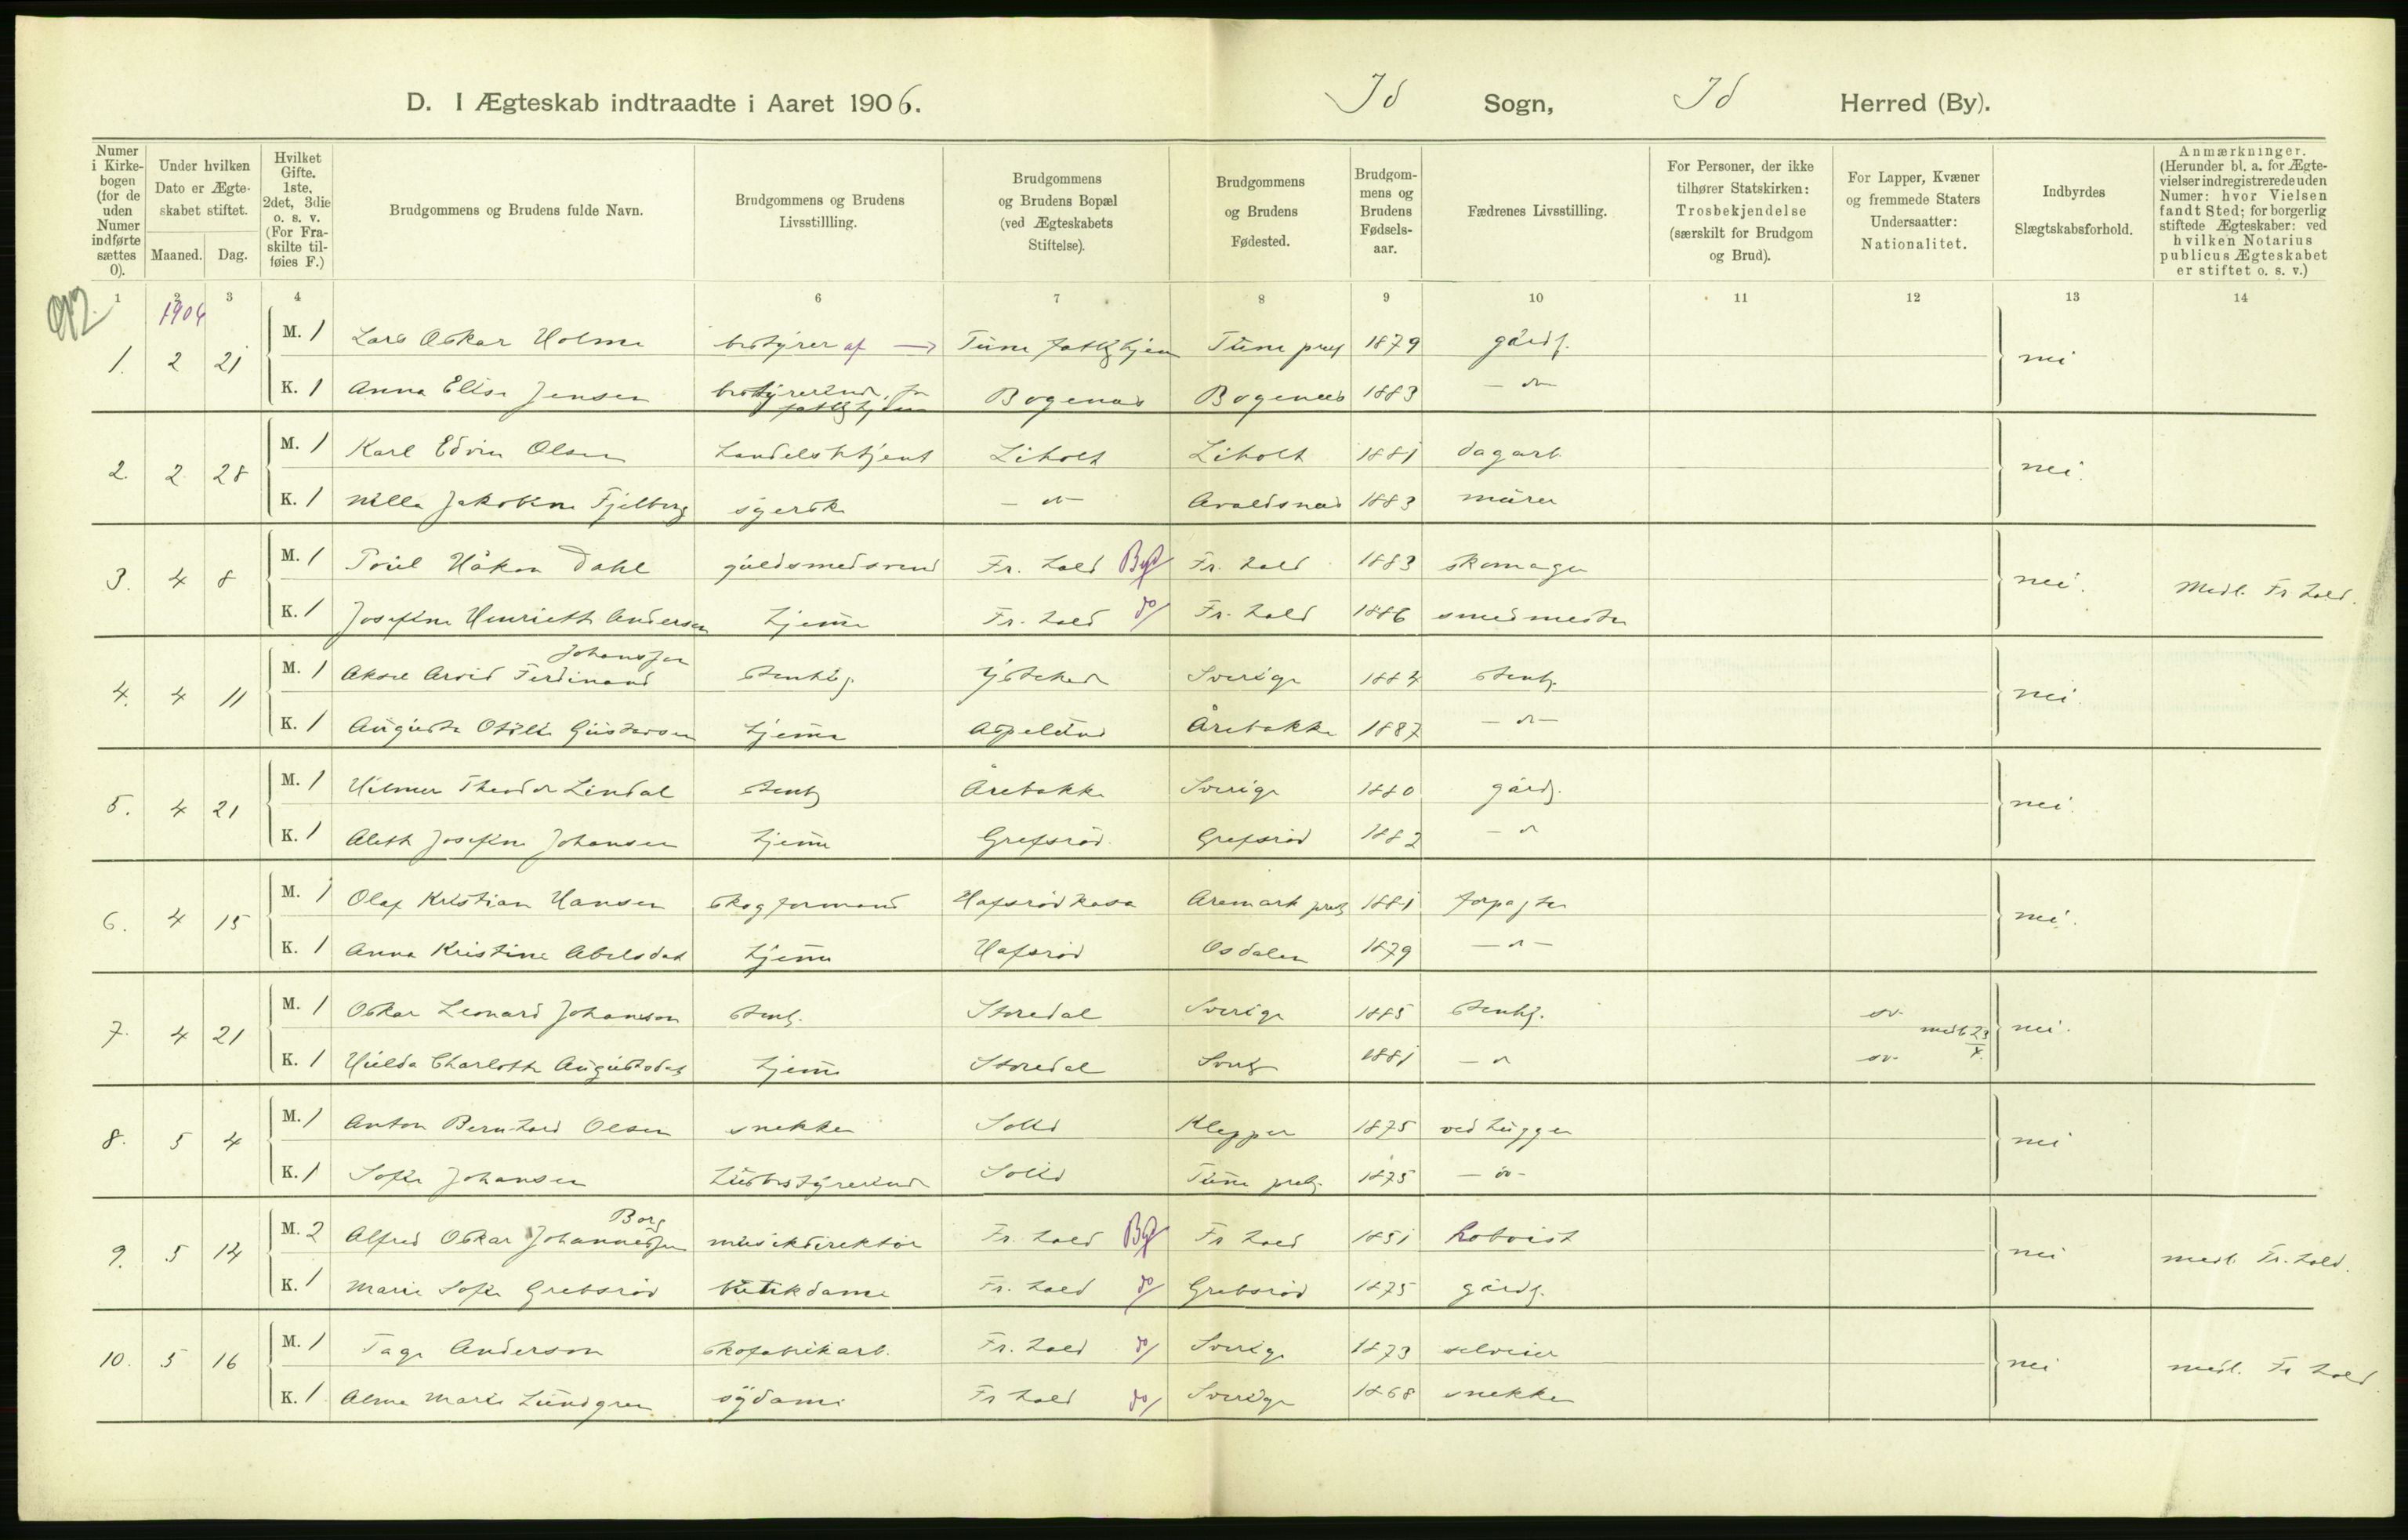 D. I Ægteskab indtraadte i Aaret 1906. Id Sogn, Id Herred (By).
Numer i Kirkebogen (for de uden Numer indførte sættes 0).
Under hvilken Dato er Ægteskabet stiftet.
Maaned. Dag.
Hvilket Gifte. 1ste, 2det, 3die o. s. v. (For Fraskilte tilføies F.)
Brudgommens og Brudens fulde Navn.
Brudgommens og Brudens Livsstillling.
Brudgommens og Brudens Bopæl (ved Ægteskabets Stiftelse).
Brudgommens og Brudens Fødested.
Brudgommens og Brudens Fødselsaar.
Fædrenes Livsstilling.
For Personer, der ikke tilhører Statskirken: Trosbekjendelse (særskilt for Brudgom og Brud).
For Lapper, Kvæner og fremmede Staters Undersaatter: Nationalitet.
Indbyrdes Slægtskabsforhold.
Anmærkninger. (Herunder bl. a. for Ægtevielser indregistrerede uden Numer: hvor Vielsen fandt Sted; for borgerlig stiftede Ægteskaber: ved hvilken Notarius publicus Ægteskabet er stiftet o. s. v.)
1 2 3 4 6 7 8 9 10 11 12 13 14
1906
1. 2 21 M. 1 Lars Oskar Holme bestyrer af → Tune fattighjem Tune prest 1879 gårdb. nei
K. 1 Anna Elise Jensen bestyrerinde, Bogenæs Bogenæs 1883 — do —
2. 2 28 M. 1 Karl Edvin Olsen handelsbetjent Liholt Liholt 1881 dagarb. nei.
K. 1 Nilla Jakobine Fjelberg syerske — do — Avaldsnæs 1883 murer
3. 4 8 M. 1 Poul Håkon Dahl guldsmedsvend Fr. hald By Fr. hald 1883 skomager nei. Medl. Fr. hald.
K. 1 Josefine Henriette Andersen hjemme Fr. hald do/ Fr. hald 1886 smedmester
4. 4 11 M. 1 Aksel Arvid Ferdinand Johansson stenhug. Ystehede Sverige 1884 stenh. nei.
K. 1 Augusta Otilie Gustavsen hjemme Aspelund Årebakke 1887 — do —
5. 4 21 M. 1 Hilmer Theodor Lindal stenh Årebakke Sverige 1880 gårdb. nei.
K. 1 Alette Josefine Johansen hjemme Grefsrød Grefsrød 1882 — do
6. 4 15 M. 1 Olaf Kristian Hansen skogformand Hafsrødkasa Aremark prest 1881 forpagter nei.
K. 1 Anna Kristine Abelsdat hjemme Hafsrød Osdalen 1879 — do —
7. 4 21 M. 1 Oskar Leonard Johansson stenh. Storedal Sverige 1885 stenh. sv. nei.
K. 1 Hulda Charlotte Augustsdat hjemme Storedal Sverig 1881 — do sv.
8. 5 4 M. 1 Anton Bernhard Olsen snekker Solli Klepper 1875 vedhugger nei
K. 1 Sofie Johansen husbestyrerinde Solli Tune prest. 1875 — do —
9. 5 14 M. 2 Alfred Oskar Johannessen Borg musikdirektør Fr. hald By Fr hald 1851 nei medl. Fr. hald.
K. 1 Marie Sofie Grebsrød butikdame Fr. hald do/ Grebsrød 1875 gårdb.
10. 5 16 M. 1 Tage Anderson skofabrikarb. Fr. hald do/ Sverige 1873 selveier nei medl. Fr hald
K. 1 Alma Marie Lundgren sydame Fr hald do/ Sverige 1868 snekker